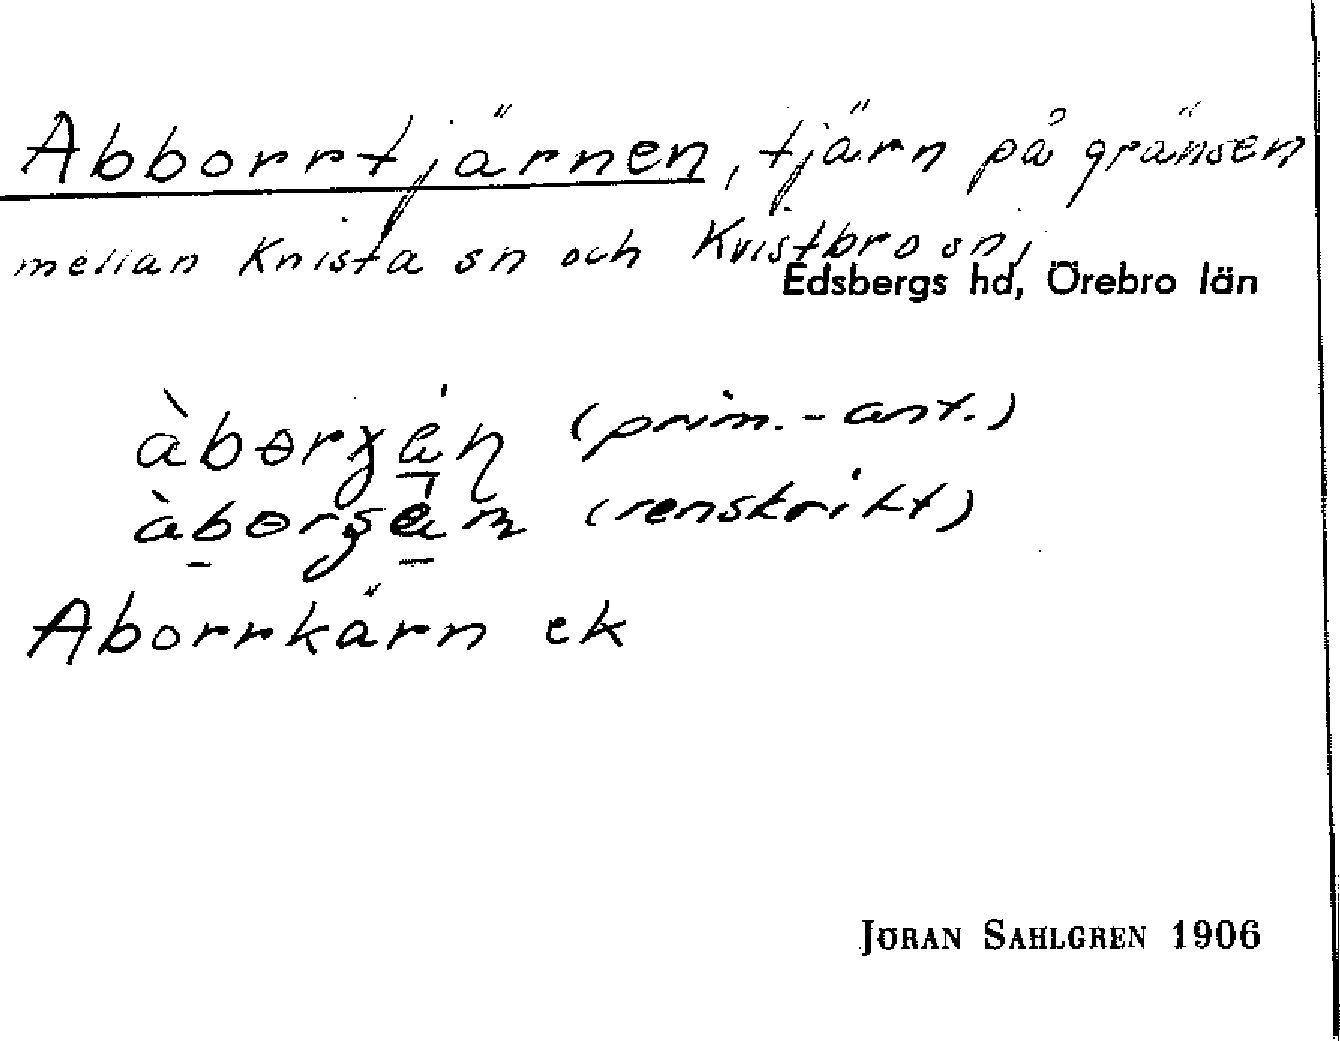 Abborrtjärnen, tjärn på gränsen
mellan Knista sn och Kvistbro sn,
Edsbergs hd, Örebro län
(prim.-ant.)
(renskrift)
Aborrkärn ek
JÖRAN SAHLGREN 1906